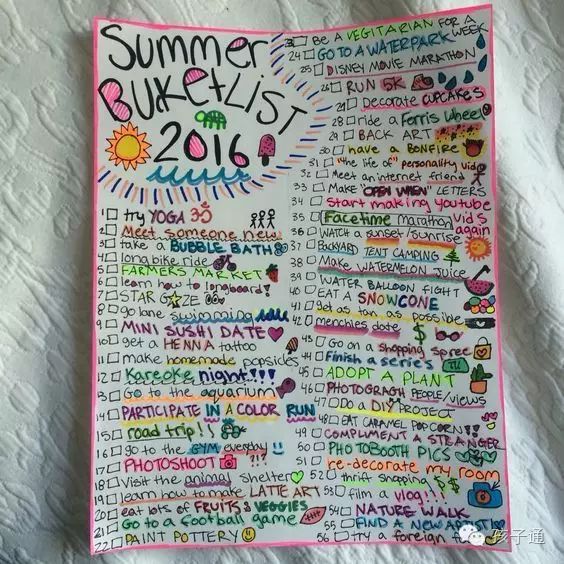 SUMMER
BUKET LIST
2016
1 try YOGA ॐ
2 Meet someone new
3 take a BUBBLE BATH
4 long bike ride
5 FARMERS MARKET
6 learn how to longboard!
7 STAR GAZE
8 go lane swimming
9 MINI SUSHI DATE
10 get a HENNA tattoo
11 make homemade popsicles
12 Kareoke night!!!
13 Go to the aquarium
14 PARTICIPATE IN A COLOR RUN
15 road trip!!
16 go to the GYM everyday
17 PHOTOSHOOT !!?
18 Visit the animal shelter
19 learn how to make LATTE ART
20 eat lots of FRUITS & VEGGIES
21 Go to a football game
22 PAINT POTTERY
23 BE A VEGITARIAN FOR A WEEK
24 GO TO A WATERPARK
25 DISNEY MOVIE MARATHON
26 RUN 5K
27 Decorate CUPCAKES
28 ride a Ferris wheel
29 BACK ART
30 have a BONFIRE
31 "the life of" personality vid
32 Meet an internet friend
33 Make "OPEN WHEN" LETTERS
34 start making youtube vids again
35 Facetime marathon
36 WATCH a sunset/sunrise
37 BACKYARD TENT CAMPING
38 Make WATERMELON JUICE
39 WATER BALLOON FIGHT
40 EAT A SNOWCONE
41 get as tan as possible
42 menchies date
43 Go on a shopping spree
44 Finish a series
45 ADOPT A PLANT
46 PHOTOGRAGH PEOPLE/VIEWS
47 Do a DIY PROJECT
48 EAT CARAMEL POPCORN!!
49 COMPLIMENT A STRANGER
50 PHOTOBOOTH PICS
51 re-decorate my room
52 thrift shopping $$
53 film a vlog!!!
54 NATURE WALK
55 FIND A NEW ARTIST
56 TRY a foreign
孩子通